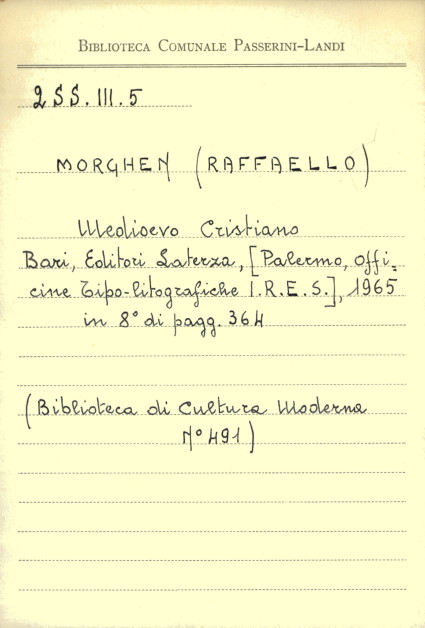 BIBLIOTECA COMUNALE PASSERINI-LANDI
2SS.III.5
MORGHEN (RAFFAELLO)
Medioevo Cristiano
Bari, Editori Laterza, [Palermo, Offi-
cine Tipo-litografiche I.R.E.S.], 1965
in 8° di pagg. 364
(Biblioteca di Cultura Moderna
N° 491)